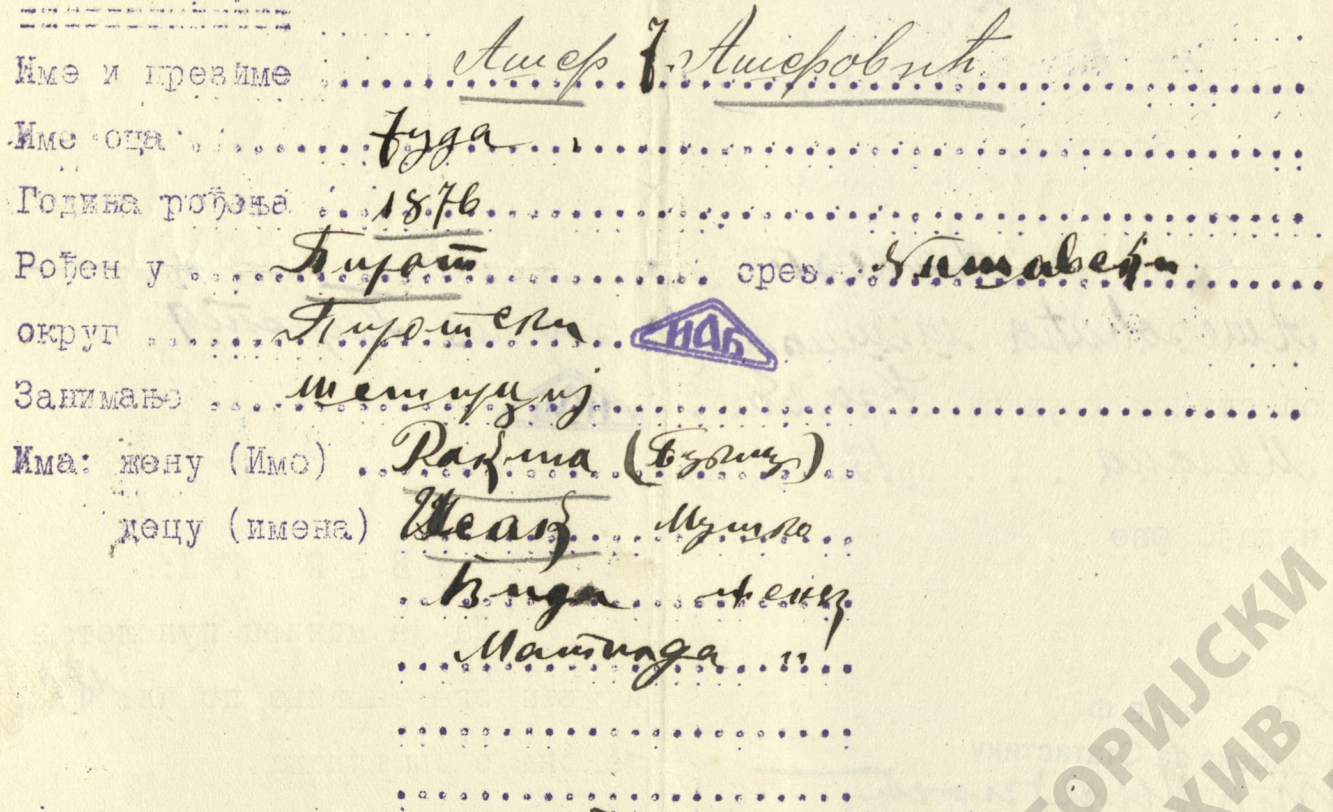 Име и презиме Ашер Ј. Ашеровић
Име оца Јуда
Година рођења 1876
Рођен у Пирот срез Нишавски
округ Пиротски ИАБ
Занимање
Има: жену (Име) Рахила
децу (имена) Исак Мушко
Вида женск
Матилда "